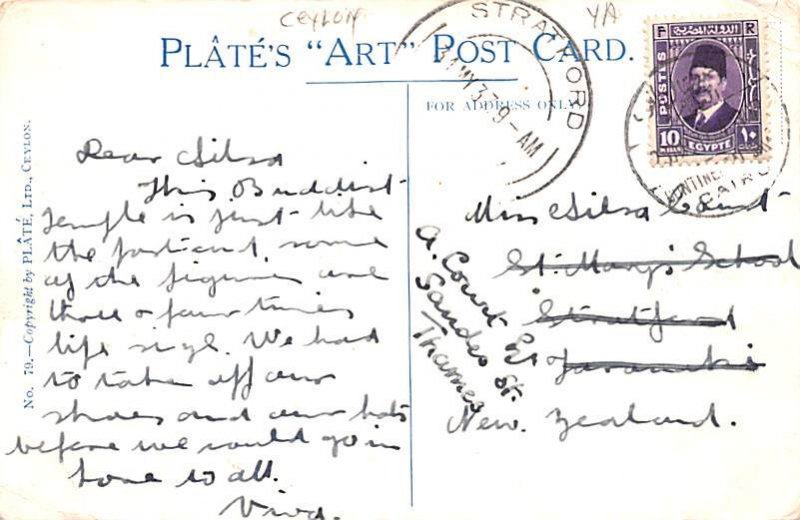 CEYLON
YA
PLÂTÉ'S "ART" POST CARD.
FOR ADDRESS ONLY.
STRATFORD
31 MY 3
9-AM
الدولة المصرية
F R
POSTES
10 ١٠
MILLS
EGYPTE
CONTINE
CAIRO
No. 79.—Copyright by PLÂTÉ, LTD., CEYLON.
Dear Cilsa
This Buddist
temple is just like
the postcard. some
of the figures are
three or four times
life size. We had
to take off our
shoes and our hats
before we could go in
Love to all.
Viva.
Miss Cilsa Court
St. Mary's School
Stratford
Taranaki
New. Zealand.
A. Court
Sandes St.
Thames